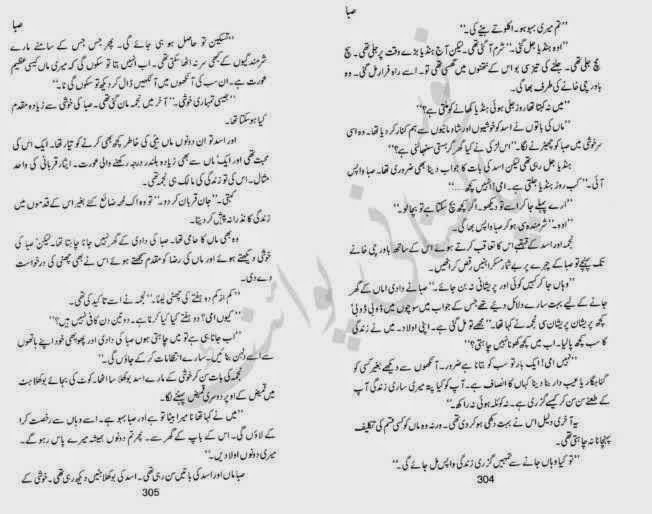 صبا
”تم میری بہو ہو۔ اکلوتے بیٹے کی۔“
”اوہ ہنڈیا جل گئی۔“ شرم آ گئی تھی۔ لیکن آج ہنڈیا بڑے وقت پر جلی تھی۔ سچ
مچ جلی تھی۔ جلنے کی تیزی سی بو اس کے نتھنوں میں گھسی تھی تو۔ اسے راہ فرار مل گئی۔ وہ
باورچی خانے کی طرف بھاگی۔
”میں نہ کہتا تھا روز جلی ہوئی ہنڈیا کھانے کو ملتی ہے؟“
ماں کی باتوں نے اسد کو خوشیوں اور شادمانیوں سے ہم کنار کر دیا تھا۔ وہ اسی
سرخوشی میں صبا کو چھیڑنے لگا۔ ”اس لڑکی نے کیا گھر گرہستی سنبھالنی ہے؟“
ہنڈیا جل رہی تھی لیکن اسد کی بات کا جواب دینا بھی ضروری تھا۔ صبا واپس
آئی۔ ”کب روز ہنڈیا جلتی ہے۔ امی! انہیں کچھ.....“
”ارے پہلے جا کر اسے تو دیکھو۔ اگر کچھ بچ سکتا ہے تو بچا لو۔“
”اوہ۔“ شرمندہ سی ہو کر صبا واپس بھاگی۔
نجمہ اور اسد کے قہقہے اس کا تعاقب کرتے ہوئے اس کے ساتھ باورچی خانے
تک پہنچے تو صبا کے چہرے پر بے شمار مسکراہٹیں رقص کر اٹھیں۔
”وہاں جا کر کہیں کوئی اور پریشانی نہ بن جائے۔“ صبا نے دادی اماں کے گھر
جانے کے لیے بہت سارے دلائل دیئے تھے جس کے جواب میں سوچوں میں ڈوبی ڈوبی
کچھ پریشان پریشان سی نجمہ نے کہا تھا۔ ”مجھے تو مل گئی ہے۔ اپنی اولاد۔ میں نے زندگی
کا سب کچھ پا لیا۔ اب میں کچھ کھونا نہیں چاہتی؟“
”نہیں امی! ایک بار تو سب کو بتانا ہے ضرور۔ آنکھوں سے دیکھے بغیر کسی کو
گناہگار یا عیب دار بنا دینا کہاں کا انصاف ہے۔ آپ کو کیا پتہ میری ساری زندگی آپ
کے طعنے سن سن کر کیسے گزری ہے۔ نہ کوئلہ ہوئی نہ راکھ۔“
یہ آخری دلیل اس نے بہت دکھی ہو کر دی تھی۔ ورنہ وہ ماں کو کسی قسم کی تکلیف
پہنچانا نہ چاہتی تھی۔
”تو کیا وہاں جانے سے تمہیں گزری زندگی واپس مل جائے گی۔“
304
صبا
”تسکین تو حاصل ہو ہی جائے گی۔ پھر جس جس کے سامنے مارے
شرمندگیوں کے کبھی سر نہ اٹھا سکتی تھی۔ اب انہیں بتا تو سکوں گی کہ میری ماں کیسی عظیم
عورت ہے۔ ان سب کی آنکھوں میں آنکھیں ڈال کر دیکھ تو سکوں گی نا۔“
”جیسی تمہاری خوشی۔“ آخر میں نجمہ مان گئی تھی۔ صبا کی خوشی سے زیادہ مقدم
کیا ہو سکتا تھا۔
اور اسد تو ان دونوں ماں بیٹی کی خاطر کچھ بھی کرنے کو تیار تھا۔ ایک اس کی
محبت تھی اور ایک ماں سے بھی زیادہ بلند درجہ رکھنے والی عورت۔ ایثار قربانی کی واحد
مثال۔ اس کی تو زندگی کی مالک ہی نجمہ تھی۔
کہتی۔ ”جان قربان کر دو۔“ تو وہ اک لمحہ ضائع کئے بغیر اس کے قدموں میں
زندگی کا نذرانہ پیش کر دیتا۔
وہ بھی ماں کا حامی تھا۔ صبا کی دادی کے گھر نہیں جانا چاہتا تھا۔ لیکن صبا کی
خوشی دیکھتے ہوئے اور ماں کی رضا کو مقدم سمجھتے ہوئے اس نے بھی چھٹی کی درخواست
دے دی۔
”کم از کم دو ہفتے کی چھٹی لینا۔“ نجمہ نے اسے تاکید کی تھی۔
”کیوں امی؟ دو ہفتے کیا کیا کرنا ہے۔ دو تین دن کافی نہیں ہیں؟“
”اب جانا ہی ہے تو میں چاہتی ہوں صبا کی دادی اور پھوپھی خود اپنے ہاتھوں
سے اسے دلہن بنائیں۔ سارے انتظامات کر کے جاؤں گی۔“
نجمہ کی بات سن کر خوشی کے مارے اسد بوکھلا سا اٹھا۔ کوٹ کی بجائے بوکھلاہٹ
میں قمیض کے اوپر دوسری قمیض پہننے لگا۔
”میں نے کہا تھا نا میرا بیٹا تو ہے اور صبا بہو ہے۔ اسے وہاں سے رخصت کرا
کے لاؤں گی۔ اس کے باپ کے گھر سے۔ پھر تم دونوں ہمیشہ میرے پاس رہو گے۔
میری دونوں اولادیں۔“
صبا ماں اور اسد کی باتیں سن رہی تھی۔ اسد کی بوکھلاہٹیں دیکھ رہی تھی۔ خوشی کے
305